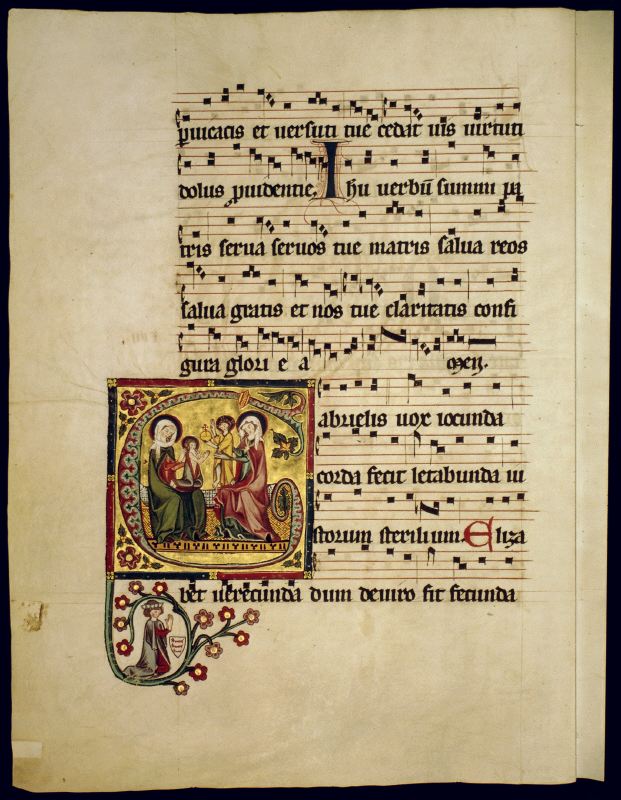 puicacis et uersuti tue cedat uis uirtuti
dolus puidentie. Ihu uerbū summi pa
tris serua seruos tue matris salua reos
salua gratis et nos tue claritatis confi
gura glori e a men.
Gabrielis uox iocunda
corda fecit letabunda iu
storum sterilium. Eliza
bet uerecunda dum deuiro fit fecunda